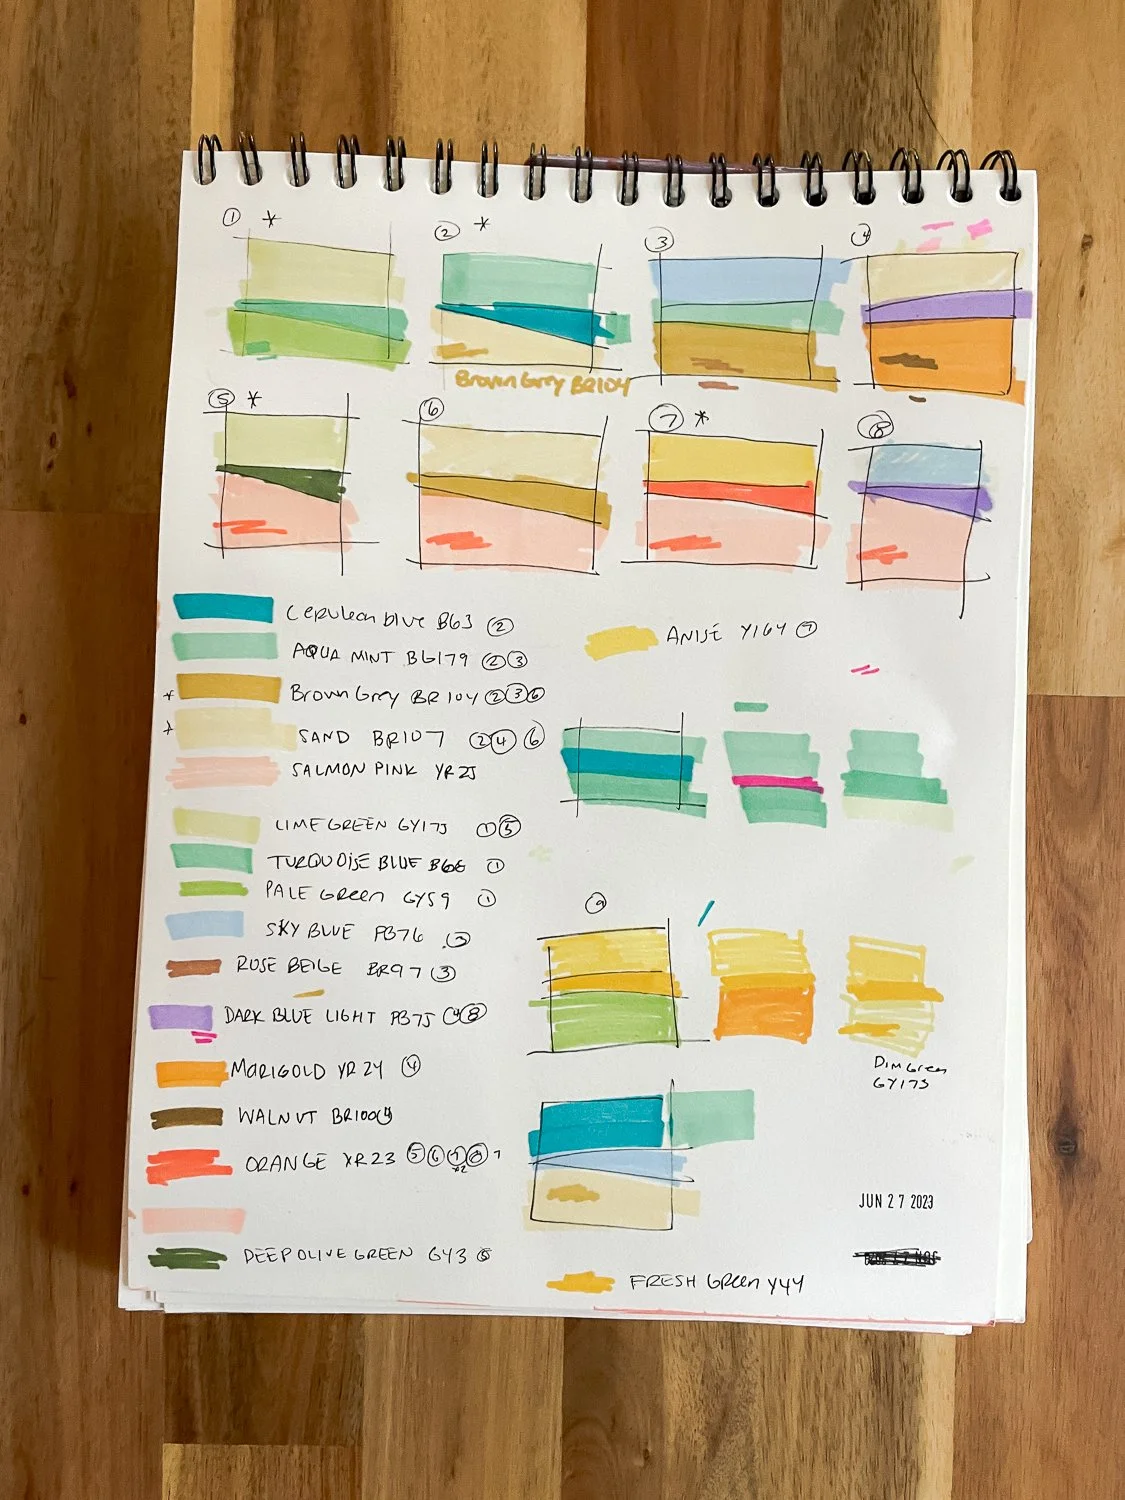 ① *
② *
③
④
Brown Grey BR104
⑤ *
⑥
⑦ *
⑧
Cerulean blue B63 ②
AQUA MINT BG179 ② ③
* Brown Grey BR104 ② ③ ⑥
* SAND BR107 ② ④ ⑥
SALMON PINK YR25
LIME GREEN GY173 ① ⑤
TURQUOISE BLUE B68 ①
PALE Green GY59 ①
SKY BLUE PB76 ③
ROSE BEIGE BR97 ③
DARK BLUE LIGHT PB75 ④ ⑧
MARIGOLD YR24 ④
WALNUT BR100 ④
ORANGE YR23 ⑤ ⑥ ⑦ ⑧
DEEP OLIVE GREEN GY3 ⑤
ANISE Y164 ⑦
⑨
Dim Green
GY173
JUN 27 2023
FRESH Green Y44